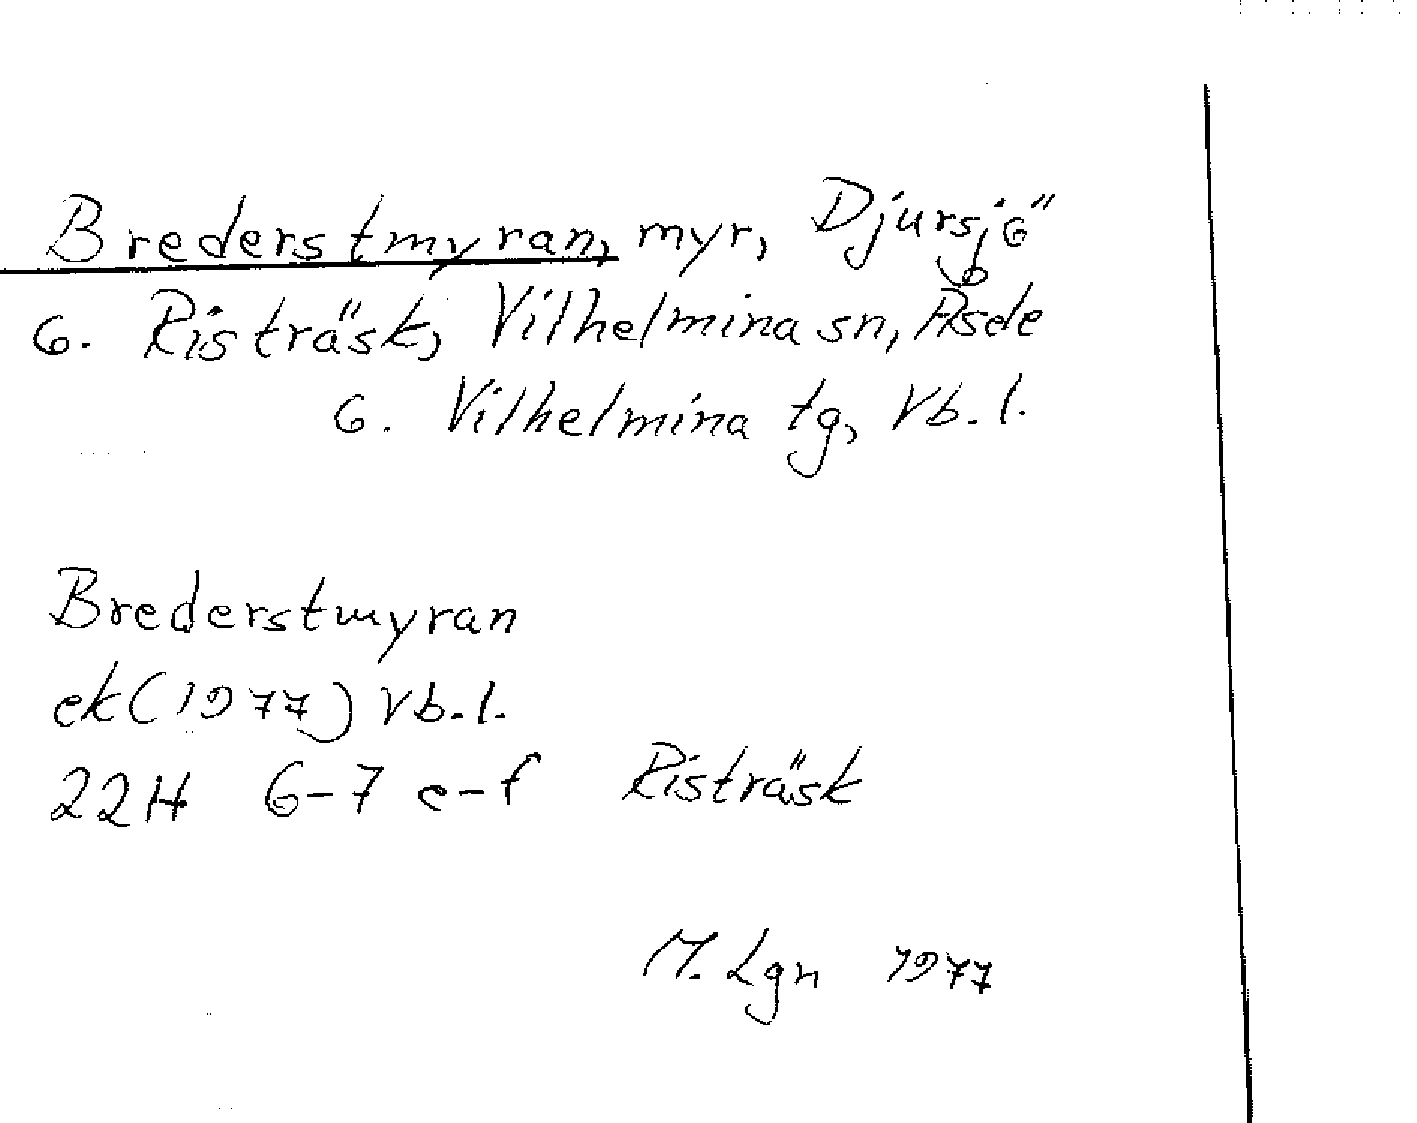 Brederstmyran, myr, Djursjö
o. Risträsk, Vilhelmina sn, Åsele
o. Vilhelmina tg, Vb. l.
Brederstmyran
ek (1977) Vb. l.
22H 6-7 e-f Risträsk
M. Lgn 1977